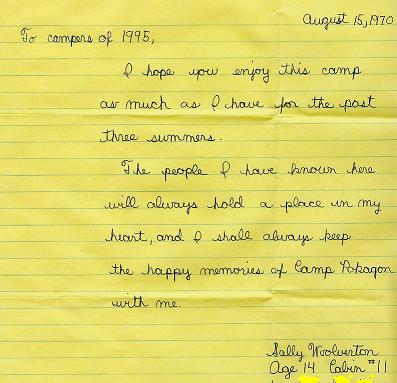 August 15, 1970
To campers of 1995,
I hope you enjoy this camp
as much as I have for the past
three summers.
The people I have known here
will always hold a place in my
heart, and I shall always keep
the happy memories of Camp Pokagon
with me.
Sally Woolverton
Age 14 Cabin #11